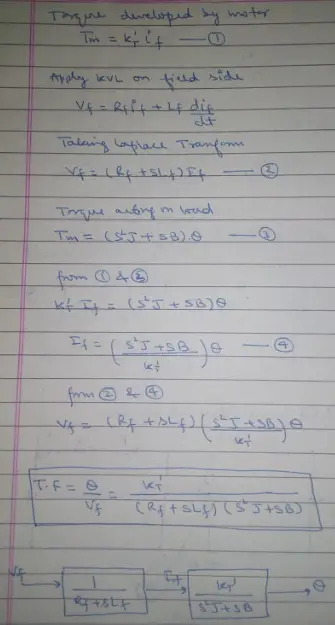 Torque developed by motor
Tm = K'T if —— ①
Apply KVL on field side
Vf = Rf if + Lf dif/dt
Taking Laplace Tranform
Vf = (Rf + SLf) If —— ②
Torque acting on load
Tm = (S²J + SB).θ —— ③
from ① & ③
K'T If = (S²J + SB)θ
If = ((S²J + SB)/K'T)θ —— ④
from ② & ④
Vf = (Rf + SLf)((S²J + SB)/K'T)θ
T.F = θ/Vf = K'T/((Rf + SLf)(S²J + SB))
Vf → 1/(Rf + SLf) → If → K'T/(S²J + SB) → θ